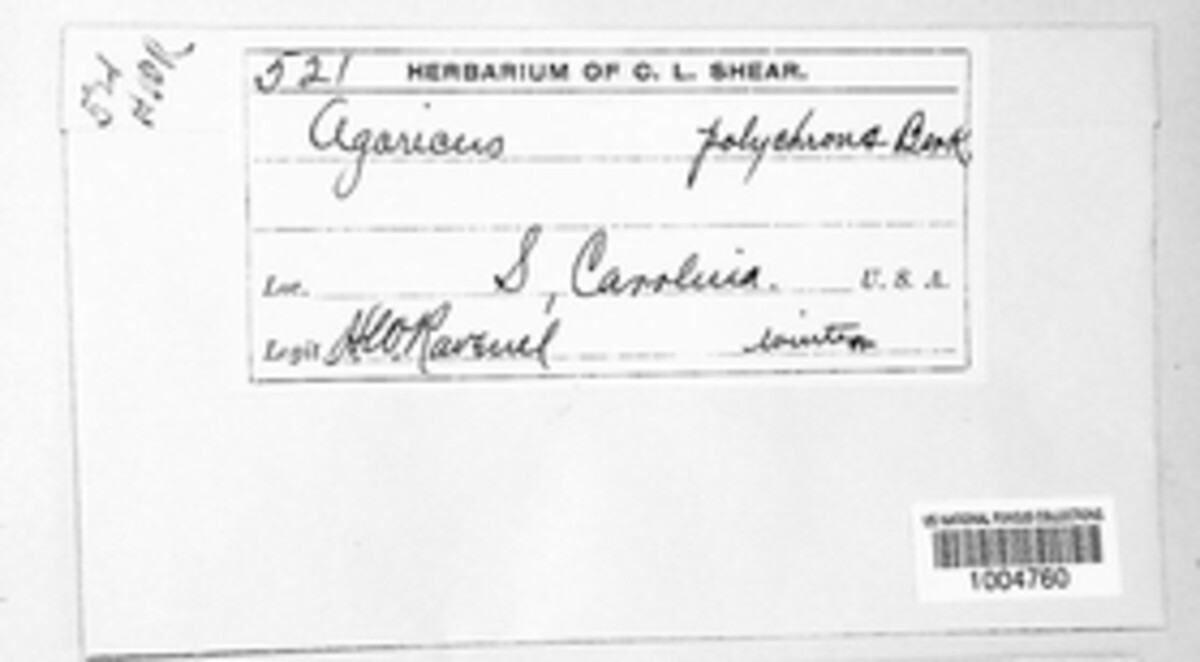 521 HERBARIUM OF C. L. SHEAR.
Agaricus polychrous Berk.
Loc. S, Carolina. U. S. A.
Legit H.W. Ravenel winter
US NATIONAL FUNGUS COLLECTIONS
1004760